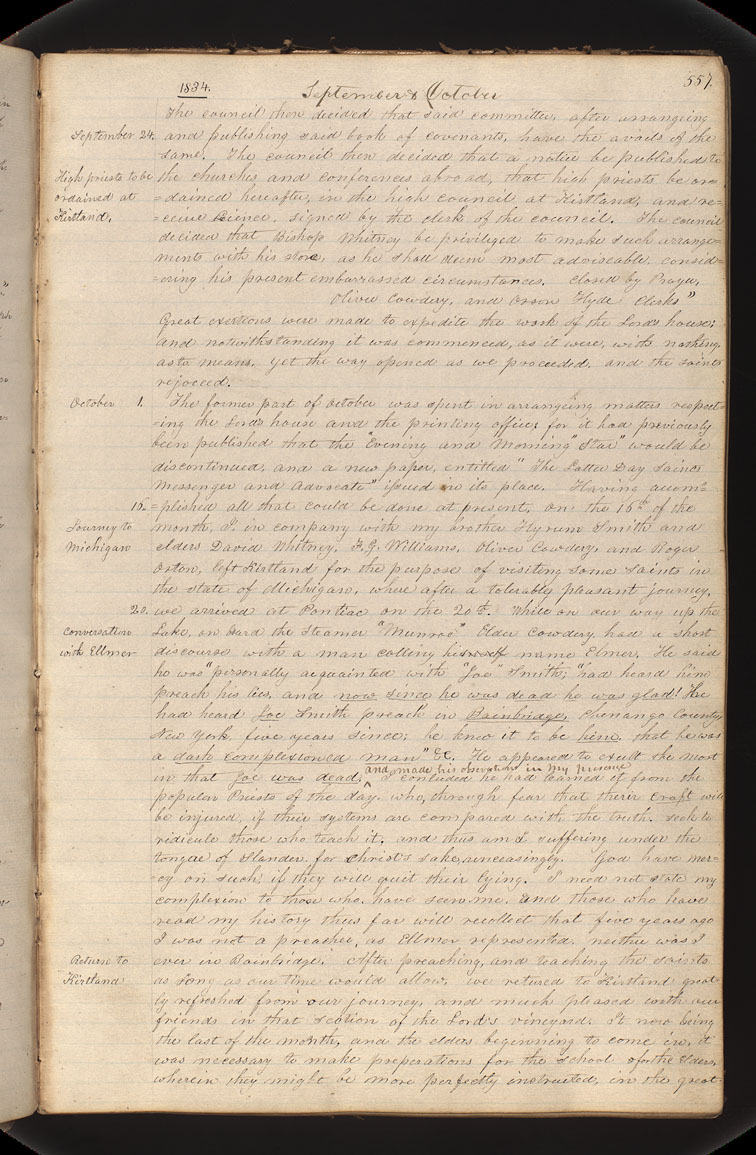 1834.
September & October
557
The council then decided that said committee, after arrangeing
September 24.
and publishing said book of covenants, have the avails of the
same. The council then decided that a notice be published to
High priests to be
the churches and conferences abroad, that high priests be or=
ordained at
=dained hereafter, in the high council at Kirtland, and re=
Kirtland,
=ceive license, signed by the clerk of the council. The council
decided that Bishop Whitney be privileged to make such arrange=
ments with his store, as he shall deem most adviseable, consid=
=ering his present embarrassed circumstances. Closed by Prayer,
Oliver Cowdery, and Orson Hyde Clerks"
Great exertions were made to expedite the work of the Lord's house;
and notwithstanding it was commenced, as it were, with nothing,
as to means, yet the way opened as we proceeded, and the saints
rejoiced.
October 1.
The former part of October was spent in arrangeing matters respect=
=ing the Lord's house and the printing office; for it had previously
been published that the "Evening and Morning" Star" would be
discontinued, and a new paper, entitled "The Latter Day Saints
Messenger and Advocate" issued in its place. Having accom=
16
=plished all that could be done at present, on the 16th of the
Journey to
month, I, in company with my brother Hyrum Smith and
Michigan
elders David Whitney, F.G. Williams, Oliver Cowdery, and Roger
Orton, left Kirtland for the purpose of visiting some saints in
the state of Michigan, where after a tolerably pleasant journey,
20.
we arrived at Pontiac on the 20th. While on our way up the
Conversation
Lake, on board the Steamer "Monroe" Elder Cowdery, had a short
with Ellmer
discourse with a man calling his name Elmer. He said
he was "personally acquainted with "Joe" Smith; "had heard him
preach his lies, and now since he was dead he was glad! He
had heard Joe Smith preach in Bainbridge, Chenango County
New York, five years since; he knew it to be him, that he was
a dark complexioned man" &c. He appeared to exult the most
and made his observations in my presence
in that Joe was dead, I concluded he had learned it from the
popular Priests of the day, who, through fear that their craft will
be injured, if their systems are compared with the truth, seek to
ridicule those who teach it, and thus am I suffering under the
tongue of slander for Christ's sake, unceasingly. God have mer=
=cy on such, if they will quit their lying. I need not state my
complexion to those who have seen me, and those who have
read my history thus far will recollect that five years ago
I was not a preacher, as Ellmer represented; neither was I
Return to
ever in Bainbridge. After preaching, and teaching the saints
Kirtland
as long as our time would allow, we returned to Kirtland great=
ly refreshed from our journey, and much pleased with our
friends in that section of the Lord's vineyard. It now being
the last of the month, and the elders beginning to come in, it
was necessary to make preperations for the school for the Elders,
wherein they might be more perfectly instructed, in the great